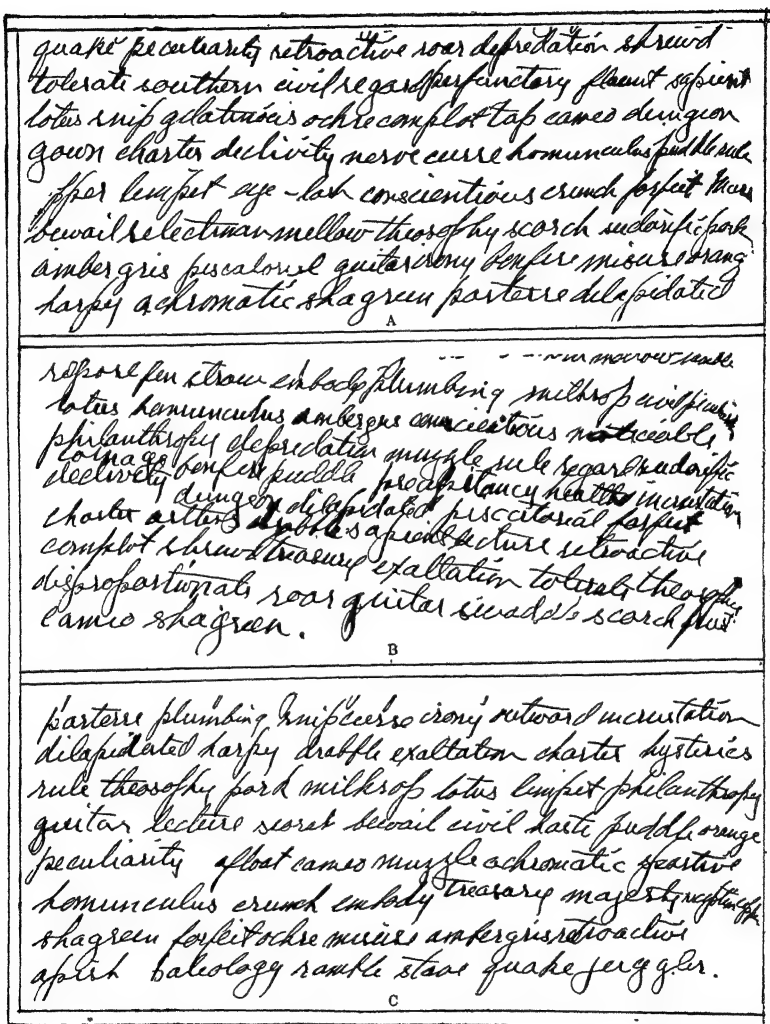 quake peculiarity retroactive roar depredation shrewd
tolerate southern civil regard perfunctory flaunt sapient
lotus snip gelatinous ochre complot tap cameo dungeon
gown charter declivity nerve curse homunculus puddle rule
limpet eye-lash conscientious crunch forfeit
bewail selectman mellow theosophy scorch sudorific pork
ambergris piscatorial guitar irony bonfire misuse orang
harpy achromatic shagreen parterre dilapidated
A
morrow
repose fen straw embody plumbing milksop civil
lotus homunculus ambergris conscientious noticeable
philanthropy depredation muzzle rule regard sudorific
declivity bonfire puddle precipitancy health incrustation
dungeon dilapidated piscatorial forfeit
charter drabble sapient lecture retroactive
complot shrewd treasury exaltation tolerate theosophy
disproportionate roar guitar swaddle scorch
cameo shagreen.
B
parterre plumbing snip curse irony outward incrustation
dilapidated harpy drabble exaltation charter hysterics
rule theosophy pork milksop lotus limpet philanthropy
guitar lecture bewail civil haste puddle orange
peculiarity afloat cameo muzzle achromatic sportive
homunculus crunch embody treasury majesty
shagreen forfeit ochre misuse ambergris retroactive
apish balcology ramble stave quake juggler.
C